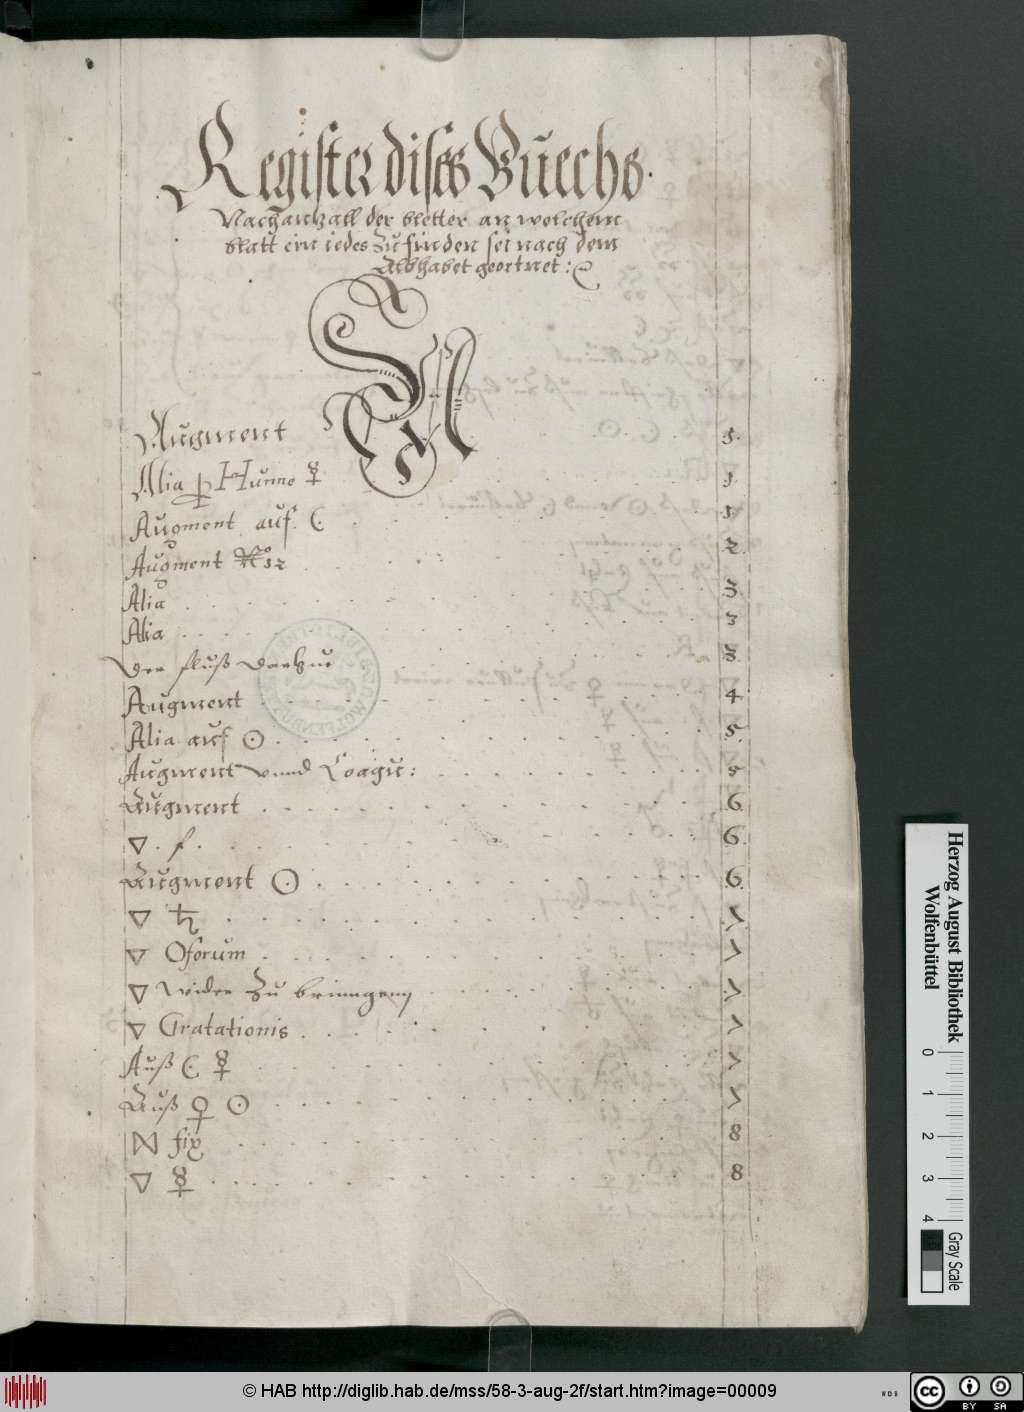 Register dises Buechs.
Nach antzall der bletter an welchem
blatt ein iedes zu finden sei nach dem
Alphabet geortnet:
A
Augment 1.
Alia ꝑ Hunno ☿ 1.
Augment auf ☾ 1.
Augment No 12 2
Alia 3.
Alia 3
Der fluß dartzue 3
Augment 4
Alia auf ☉ 5.
Augment vnnd Coagu: 5
Augment 6
▽. f. 6.
Augment ☉ 6.
▽ ♄ 7
▽ Oforum 7
▽ wider zu bringen 7
▽ Gratationis 7
Auß ☾ ☿ 7
Auß ♀ ☉ 7
fix 8
▽ ☿ 8
Herzog August Bibliothek
Wolfenbüttel
0 1 2 3 4
Gray Scale
© HAB http://diglib.hab.de/mss/58-3-aug-2f/start.htm?image=00009
WDB
cc BY SA